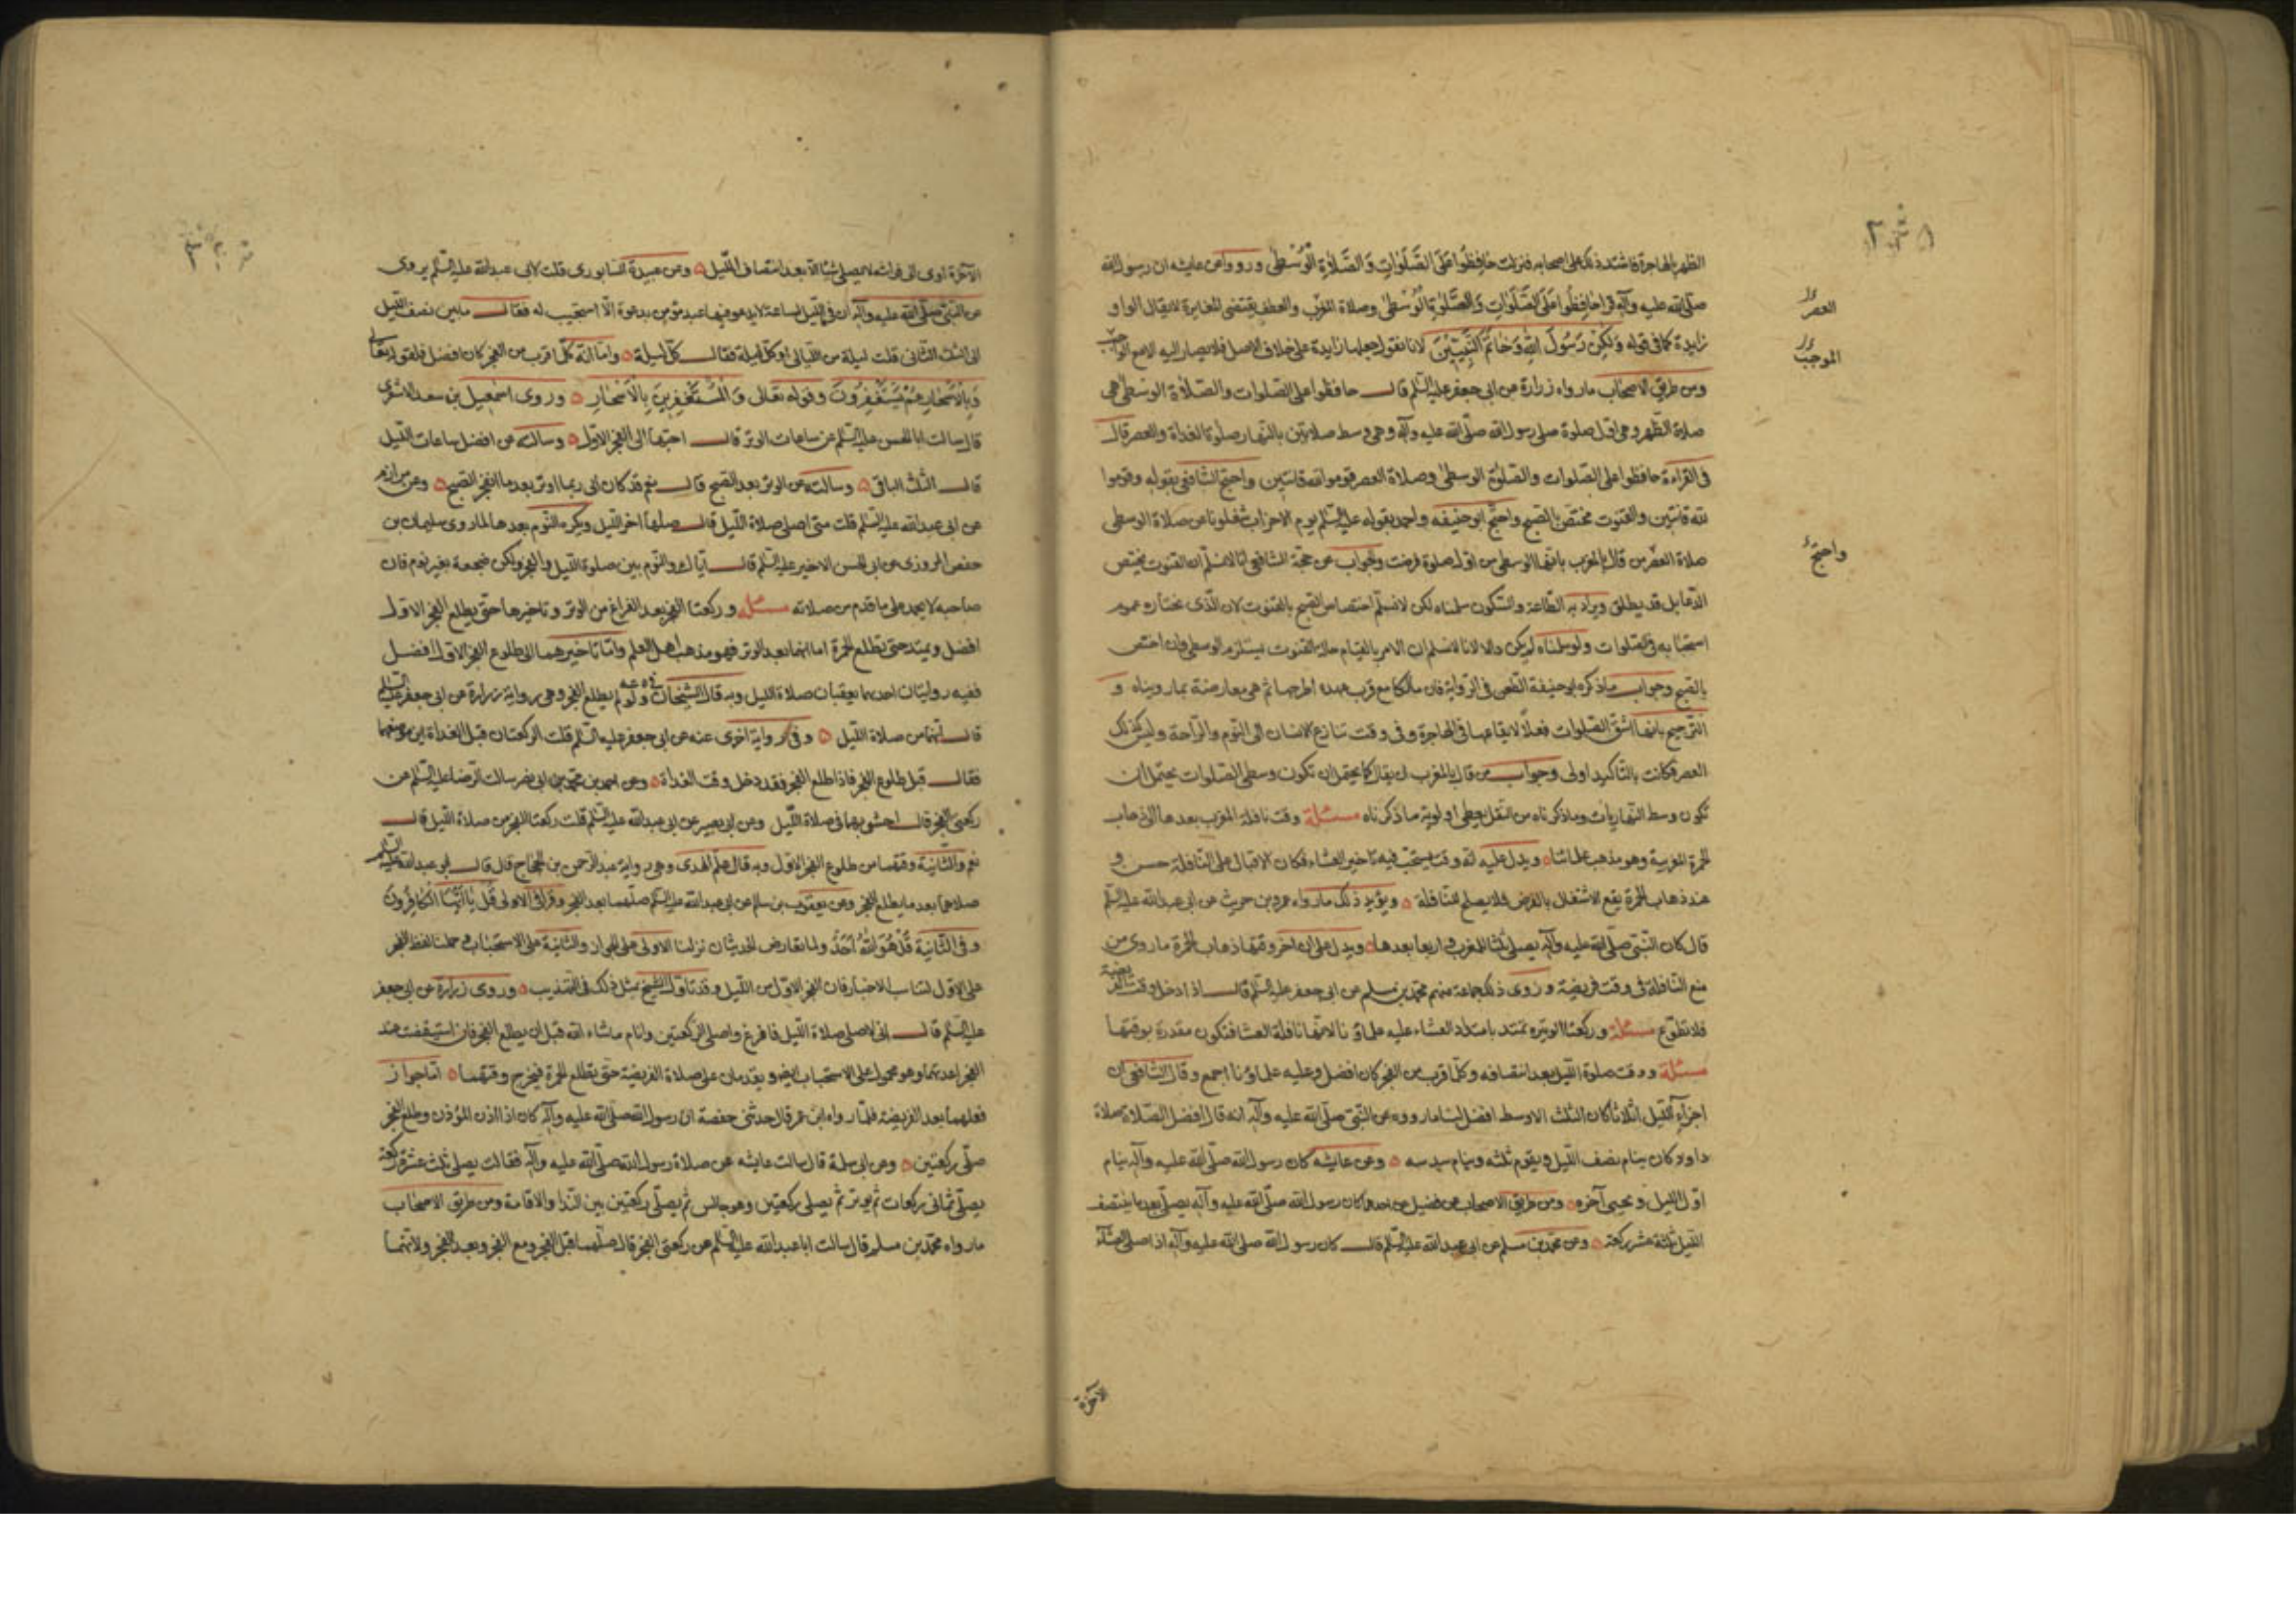 الظهر بالهاجرة فاشتد ذلك على اصحابه فنزلت حافظوا على الصلوات والصلاة الوسطى ورووا عن عايشه ان رسول الله
صلى الله عليه وآله قرا حافظوا على الصلوات والصلوة الوسطى وصلاة العصر والعطف يقتضى المغايرة لا يقال الواو
زايدة كما فى قوله ولكن رسول الله وخاتم النبيين لانا نقول جعلها زايدة على خلاف الاصل فلا يصار اليه الا مع الواجب
ومن طريق الاصحاب ما رواه زرارة عن ابى جعفر عليه السلم قال حافظوا على الصلوات والصلاة الوسطى هى
صلاة الظهر وهى اول صلوة صلى رسول الله صلى الله عليه وآله وهى وسط صلاتين بالنهار صلوة الغداة والعصر قال
فى القراءة حافظوا على الصلوات والصلوة الوسطى وصلاة العصر قوموا لله قانتين واحتج الشافعى بقوله وقوموا
لله قانتين والقنوت مختص بالصبح واحتج ابو حنيفه واحمد بقوله عليه السلم يوم الاحزاب شغلونا عن صلاة الوسطى
صلاة العصر من قال بالمغرب بانها الوسطى من اول صلوة فرضت والجواب عن حجة الشافعى انا لا نسلم ان القنوت يختص
الدعا بل قد يطلق ويراد به الطاعة والسكون سلمناه لكن لا نسلم اختصاص الصبح بالقنوت لان الذى نختاره عموم
استحبابه فى الصلوات ولو سلمناه لم يكن دالا لانا لا نسلم ان الامر بالقيام حالة القنوت يستلزم الوسطى وان اختص
بالصبح وجواب ما ذكره ابو حنيفة الطعن فى الرواية فان مالكا مع قرب عهده اطرحها ثم هى معارضة بما رويناه و
الترجيح بانها اشق الصلوات فعلا لايقاعها فى الهاجرة وفى وقت تنازع الانسان الى النوم والراحة وليس كذلك
العصر فكانت بالتأكيد اولى وجواب من قال بالمغرب ان يقال كما يحتمل ان تكون وسطى الصلوات يحتمل ان
تكون وسط النهاريات وما ذكرناه من النقل يعطى اولوية ما ذكرناه مسئلة وقت نافلة المغرب بعدها الى ذهاب
الحمرة المغربية وهو مذهب علمائنا ويدل عليه انه وقت يستحب فيه تاخير العشاء فكان الاقبال على النافلة حسن و
عند ذهاب الحمرة يقع الاشتغال بالفرض فلا يصلح للنافلة ويؤيد ذلك ما رواه عمرو بن حريث عن ابى عبد الله عليه السلم
قال كان النبى صلى الله عليه وآله يصلى ثلثا المغرب واربعا بعدها ويدل على ان اخر وقتها ذهاب الحمرة ما روى من
منع النافلة فى وقت فريضة وروى ذلك جماعة منهم محمد بن مسلم عن ابى جعفر عليه السلم قال اذا دخل وقت الفريضة
فلا تطوع مسئلة وركعتا الوتيره تمتد بامتداد العشاء عليه علماؤنا لانها نافلة العشا فتكون مقدرة بوقتها
مسئلة ووقت صلوة الليل بعد انتصافه وكلما قرب من الفجر كان افضل وعليه علماؤنا اجمع وقال الشافعى ان
اجزاء الليل اثلاثا كان الثلث الاوسط افضل لنا ما رووه عن النبى صلى الله عليه وآله انه قال افضل الصلاة صلاة
داود كان ينام نصف الليل ويقوم ثلثه وينام سدسه وعن عايشه كان رسول الله صلى الله عليه وآله ينام
اول الليل ويحيى آخره ومن طريق الاصحاب عن فضيل عن احدهما كان رسول الله صلى الله عليه وآله يصلى بعد ما ينتصف
الليل ثلثة عشر ركعة وعن محمد بن مسلم عن ابى عبد الله عليه السلم قال كان رسول الله صلى الله عليه وآله اذا صلى العشاء
العصر
الموجب
واحتج
الآخرة
الآخرة اوى الى فراشه لا يصلى شيئا الا بعد انتصاف الليل وعن عبيدة النسابورى قلت لابى عبد الله عليه السلم يروى
عن النبى صلى الله عليه وآله ان فى الليل لساعة لا يدعو فيها عبد مؤمن بدعوة الا استجيب له فقال ما بين نصف الليل
الى الثلث الثانى قلت ليلة من الليالى او كل ليلة فقال كل ليلة واما انه كلما قرب من الفجر كان افضل فلقوله تعالى
وبالاسحار هم يستغفرون وقوله تعالى والمستغفرين بالاسحار وروى اسمعيل بن سعد الاشعرى
قال سالت ابا الحسن عليه السلم عن ساعات الوتر قال احبها الى الفجر الاول وسالته عن افضل ساعات الليل
قال الثلث الباقى وسالته عن الوتر بعد الصبح قال نعم قد كان ابى ربما اوتر بعد ما انفجر الصبح وعن مرازم
عن ابى عبد الله عليه السلم قلت متى اصلى صلاة الليل قال صلها اخر الليل ويكره النوم بعدها لما روى سليمان بن
حفص المروزى عن ابى الحسن الاخير عليه السلم قال اياك والنوم بين صلوة الليل والفجر ولكن ضجعة بغير نوم فان
صاحبه لا يحمد على ما قدم من صلاته مسئلة وركعتا الفجر بعد الفراغ من الوتر وتاخيرها حتى يطلع الفجر الاول
افضل ويمتد حتى تطلع الحمرة اما انهما بعد الوتر فهو مذهب اهل العلم واما تاخيرهما الى طلوع الفجر الاول افضل
ففيه روايتان احديهما يعقبان صلاة الليل وبه قال الشيخان ولو لم يطلع الفجر وهى رواية زرارة عن ابى جعفر عليه السلم
قال انهما من صلاة الليل وفى رواية اخرى عنه عن ابى جعفر عليه السلم قلت الركعتان قبل الغداة اين موضعهما
فقال قبل طلوع الفجر فاذا طلع الفجر فقد دخل وقت الغداة وعن احمد بن محمد بن ابى نصر سالت الرضا عليه السلم عن
ركعتى الفجر قال احشو بهما فى صلاة الليل وعن ابى بصير عن ابى عبد الله عليه السلم قلت ركعتا الفجر من صلاة الليل قال
نعم والثانية وقتهما من طلوع الفجر الاول وبه قال علم الهدى وهى رواية عبد الرحمن بن الحجاج قال قال ابو عبد الله عليه السلم
صلاهما بعد ما يطلع الفجر وعن يعقوب بن سلم عن ابى عبد الله عليه السلم صلهما بعد الفجر وقرا فى الاولى قل يا ايها الكافرون
وفى الثانية قل هو الله احد ولما تعارض الحديثان نزلنا الاولى على الجواز والثانية على الاستحباب وحملنا لفظ الفجر
على الاول لتناسب الاخبار فان الفجر الاول من الليل وقد تاول الشيخ بمثل ذلك فى التهذيب وروى زرارة عن ابى جعفر
عليه السلم قال انى لاصلى صلاة الليل فافرغ واصلى الركعتين وانام ما شاء الله قبل ان يطلع الفجر فان استيقظت عند
الفجر اعدتهما وهو محمول على الاستحباب ايضا ويقدمان على صلاة الفريضة حتى تطلع الحمرة فيخرج وقتهما اما جواز
فعلهما بعد الفريضة فلما رواه ابن عمر قال حدثتنى حفصة ان رسول الله صلى الله عليه وآله كان اذا اذن المؤذن وطلع الفجر
صلى ركعتين وعن ابى سلمة قال سالت عايشه عن صلاة رسول الله صلى الله عليه وآله فقالت يصلى ثلث عشرة ركعة
يصلى ثمانى ركعات ثم يوتر ثم يصلى ركعتين وهو جالس ثم يصلى ركعتين بين الندا والاقامة ومن طريق الاصحاب
ما رواه محمد بن مسلم قال سالت ابا عبد الله عليه السلم عن ركعتى الفجر قال صلهما قبل الفجر ومع الفجر وبعد الفجر ولانهما